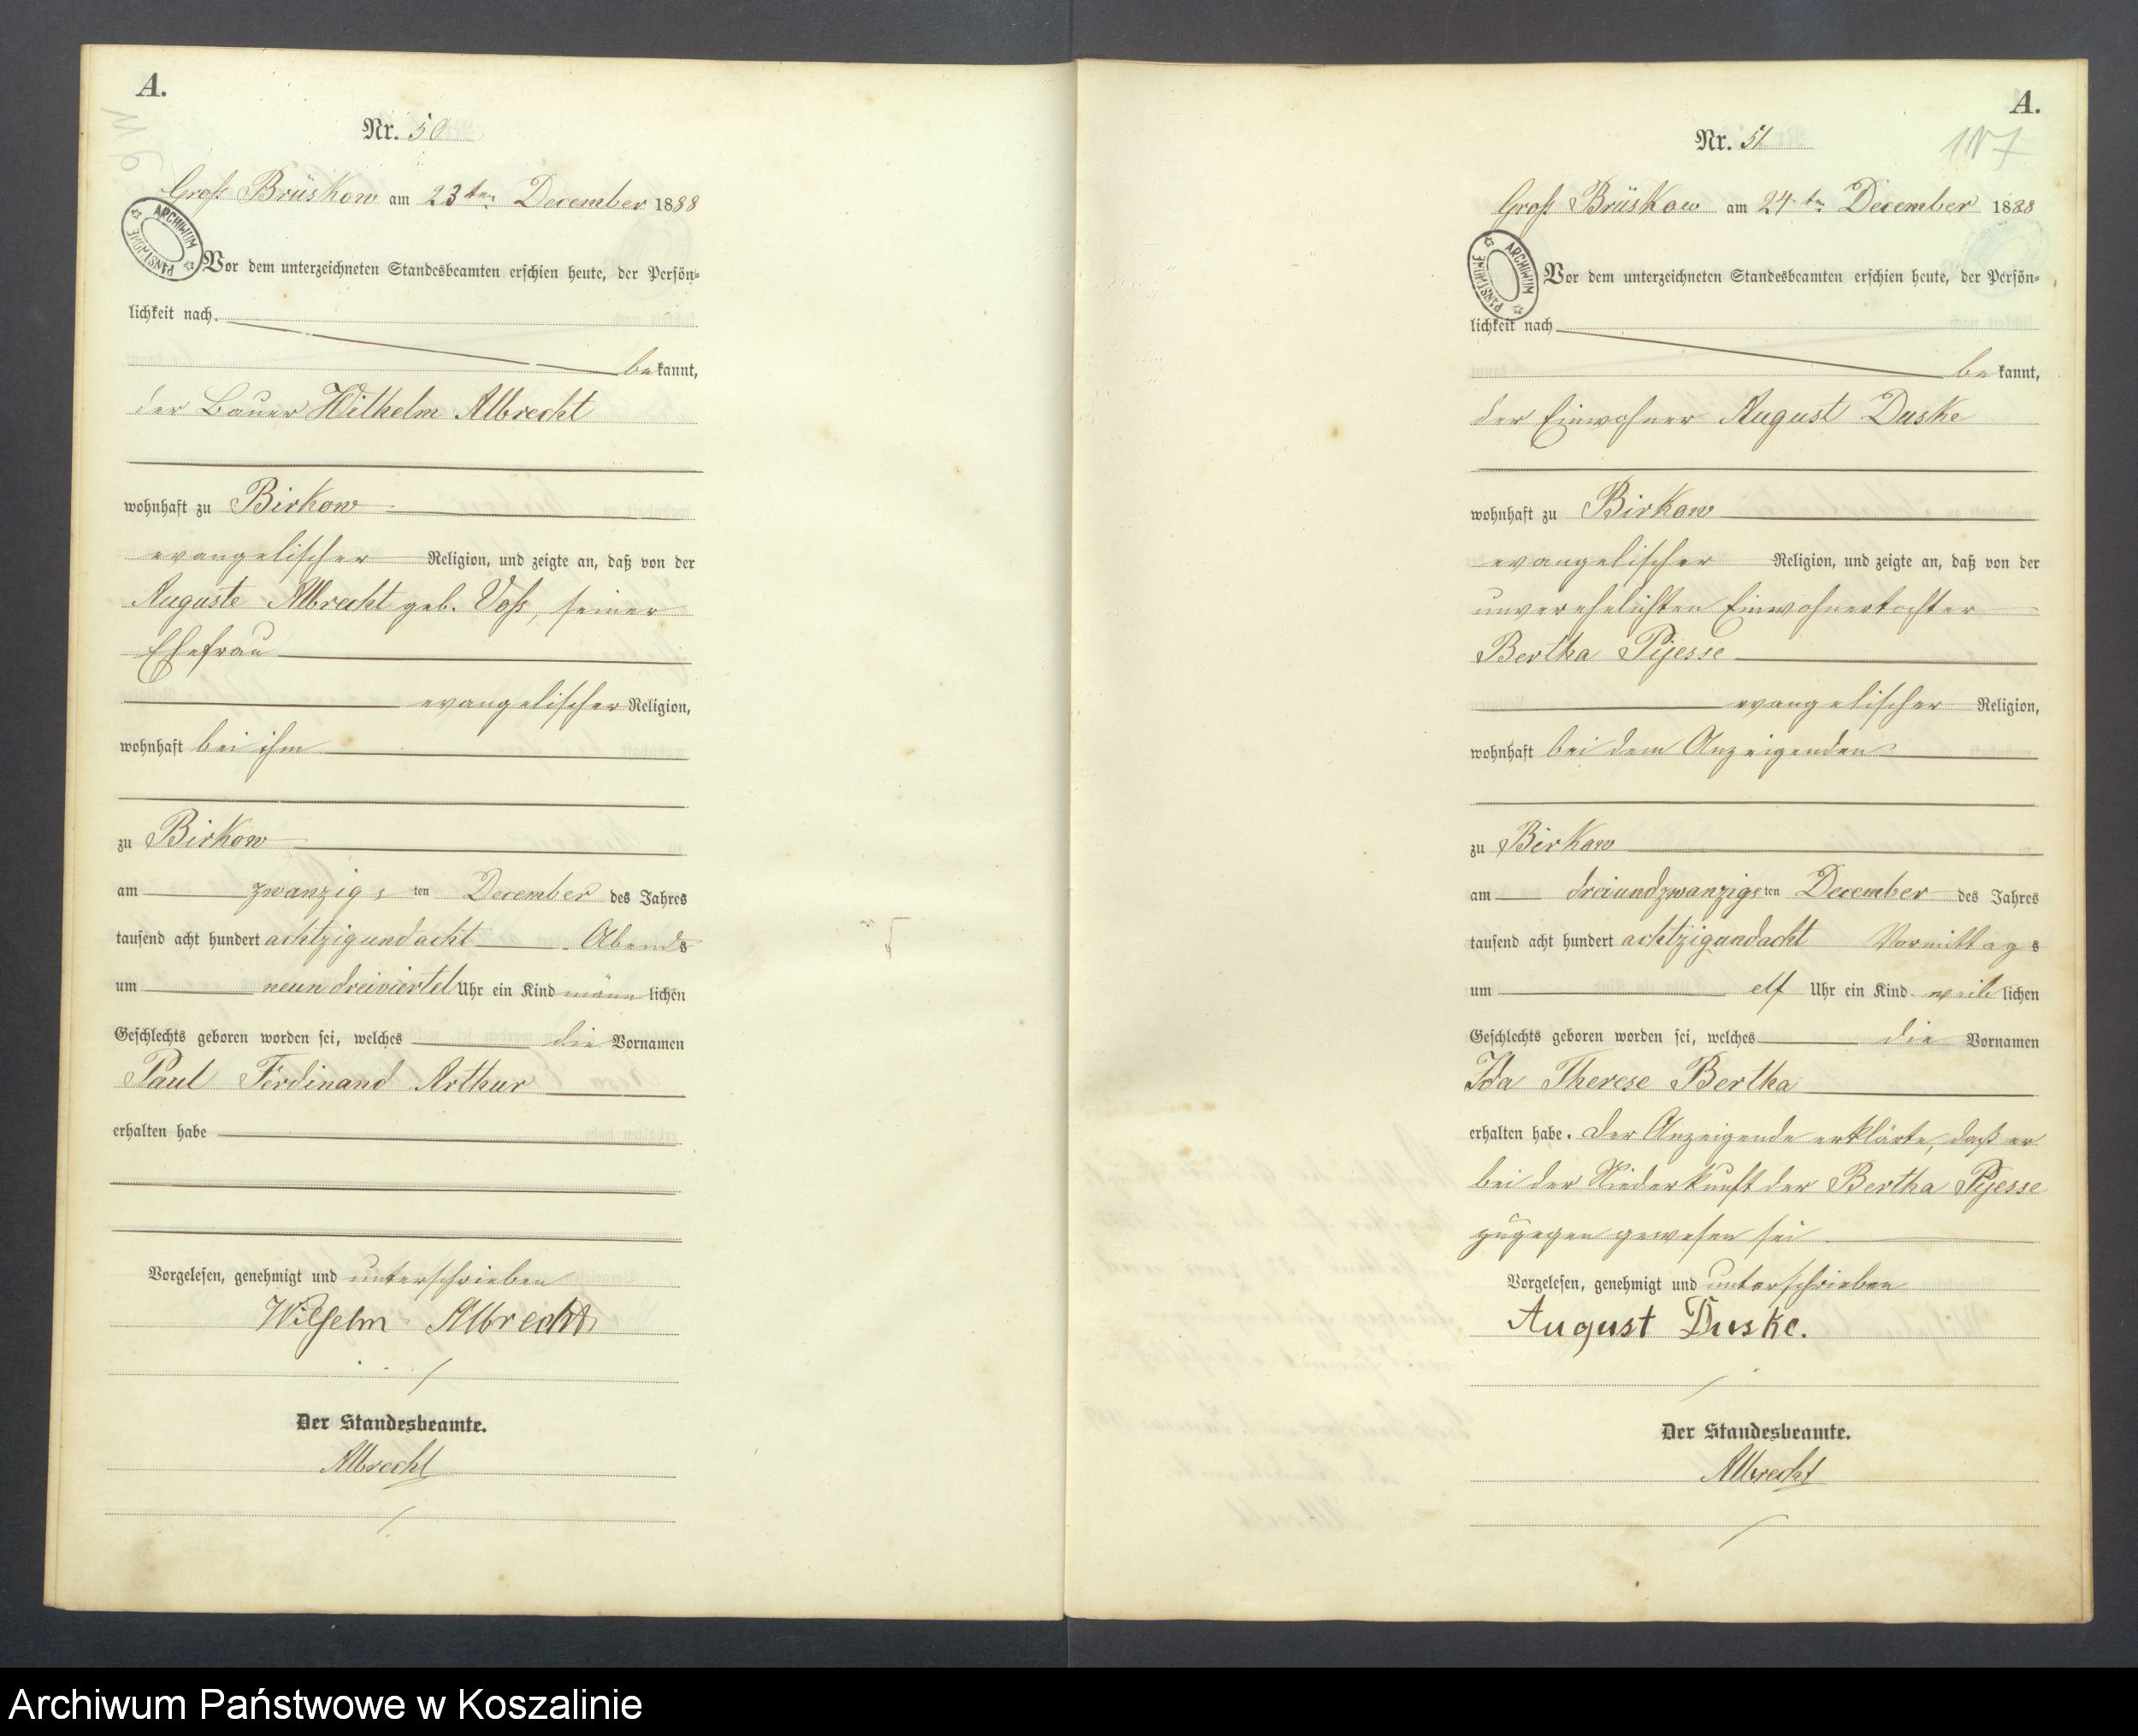 A.
Nr. 50
Groß Brüskow am 23ten December 1888
ARCHIWUM PAŃSTWOWE
Vor dem unterzeichneten Standesbeamten erschien heute, der Persön=
lichkeit nach
bekannt,
der Bauer Wilhelm Albrecht
wohnhaft zu Birkow
evangelischer Religion, und zeigte an, daß von der
Auguste Albrecht geb. Voß, seiner
Ehefrau
evangelischer Religion,
wohnhaft bei ihm
zu Birkow
am zwanzigsten December des Jahres
tausend acht hundert achtzigundacht Abends
um neun dreiviertel Uhr ein Kind männlichen
Geschlechts geboren worden sei, welches die Vornamen
Paul Ferdinand Arthur
erhalten habe
Vorgelesen, genehmigt und unterschrieben
Wilhelm Albrecht
Der Standesbeamte.
Albrecht
A.
Nr. 51
117
Groß Brüskow am 24ten December 1888
ARCHIWUM PAŃSTWOWE
Vor dem unterzeichneten Standesbeamten erschien heute, der Persön=
lichkeit nach
bekannt,
der Einwohner August Duske
wohnhaft zu Birkow
evangelischer Religion, und zeigte an, daß von der
unverehelichten Einwohnertochter
Bertha Pijesse
evangelischer Religion,
wohnhaft bei dem Anzeigenden
zu Birkow
am dreiundzwanzigsten December des Jahres
tausend acht hundert achtzigundacht Vormittags
um elf Uhr ein Kind weiblichen
Geschlechts geboren worden sei, welches die Vornamen
Ida Therese Bertha
erhalten habe. Der Anzeigende erklärte, daß er
bei der Niederkunft der Bertha Pijesse
zugegen gewesen sei
Vorgelesen, genehmigt und unterschrieben
August Duske.
Der Standesbeamte.
Albrecht
Archiwum Państwowe w Koszalinie